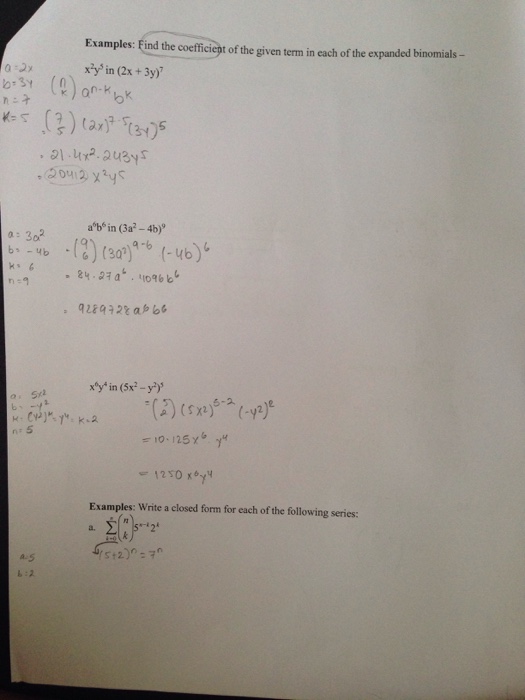 Examples: Find the coefficient of the given term in each of the expanded binomials –
a=2x
b=3y
n=7
k=5
x²y⁵ in (2x + 3y)⁷
(n k) aⁿ⁻ᵏ bᵏ
(7 5) (2x)⁷⁻⁵(3y)⁵
. 21·4x²·243y⁵
. 20412 x²y⁵
a⁶b⁶ in (3a² – 4b)⁹
a: 3a²
b: -4b
k: 6
n=9
(9 6) (3a²)⁹⁻⁶ (-4b)⁶
= 84·27a⁶·4096b⁶
= 9289728 a⁶b⁶
x⁶y⁴ in (5x² – y²)⁵
a: 5x²
b: -y²
n=5
=(5 2) (5x²)⁵⁻² (-y²)²
= 10·125x⁶ y⁴
= 1250 x⁶y⁴
Examples: Write a closed form for each of the following series:
a. Σ (n k) 5ⁿ⁻ᵏ2ᵏ
(5+2)ⁿ = 7ⁿ
a:5
b:2